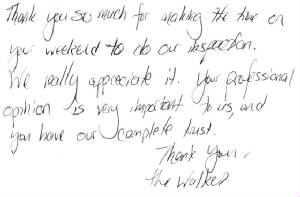 Thank you so much for making the time on
your weekend to do our inspection.
We really appreciate it. Your professional
opinion is very important to us, and
you have our complete trust.
Thank you,
The Walkers